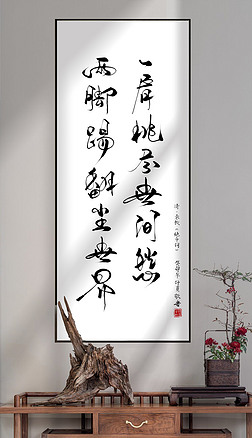 一肩挑尽世间愁
两脚踢翻尘世界